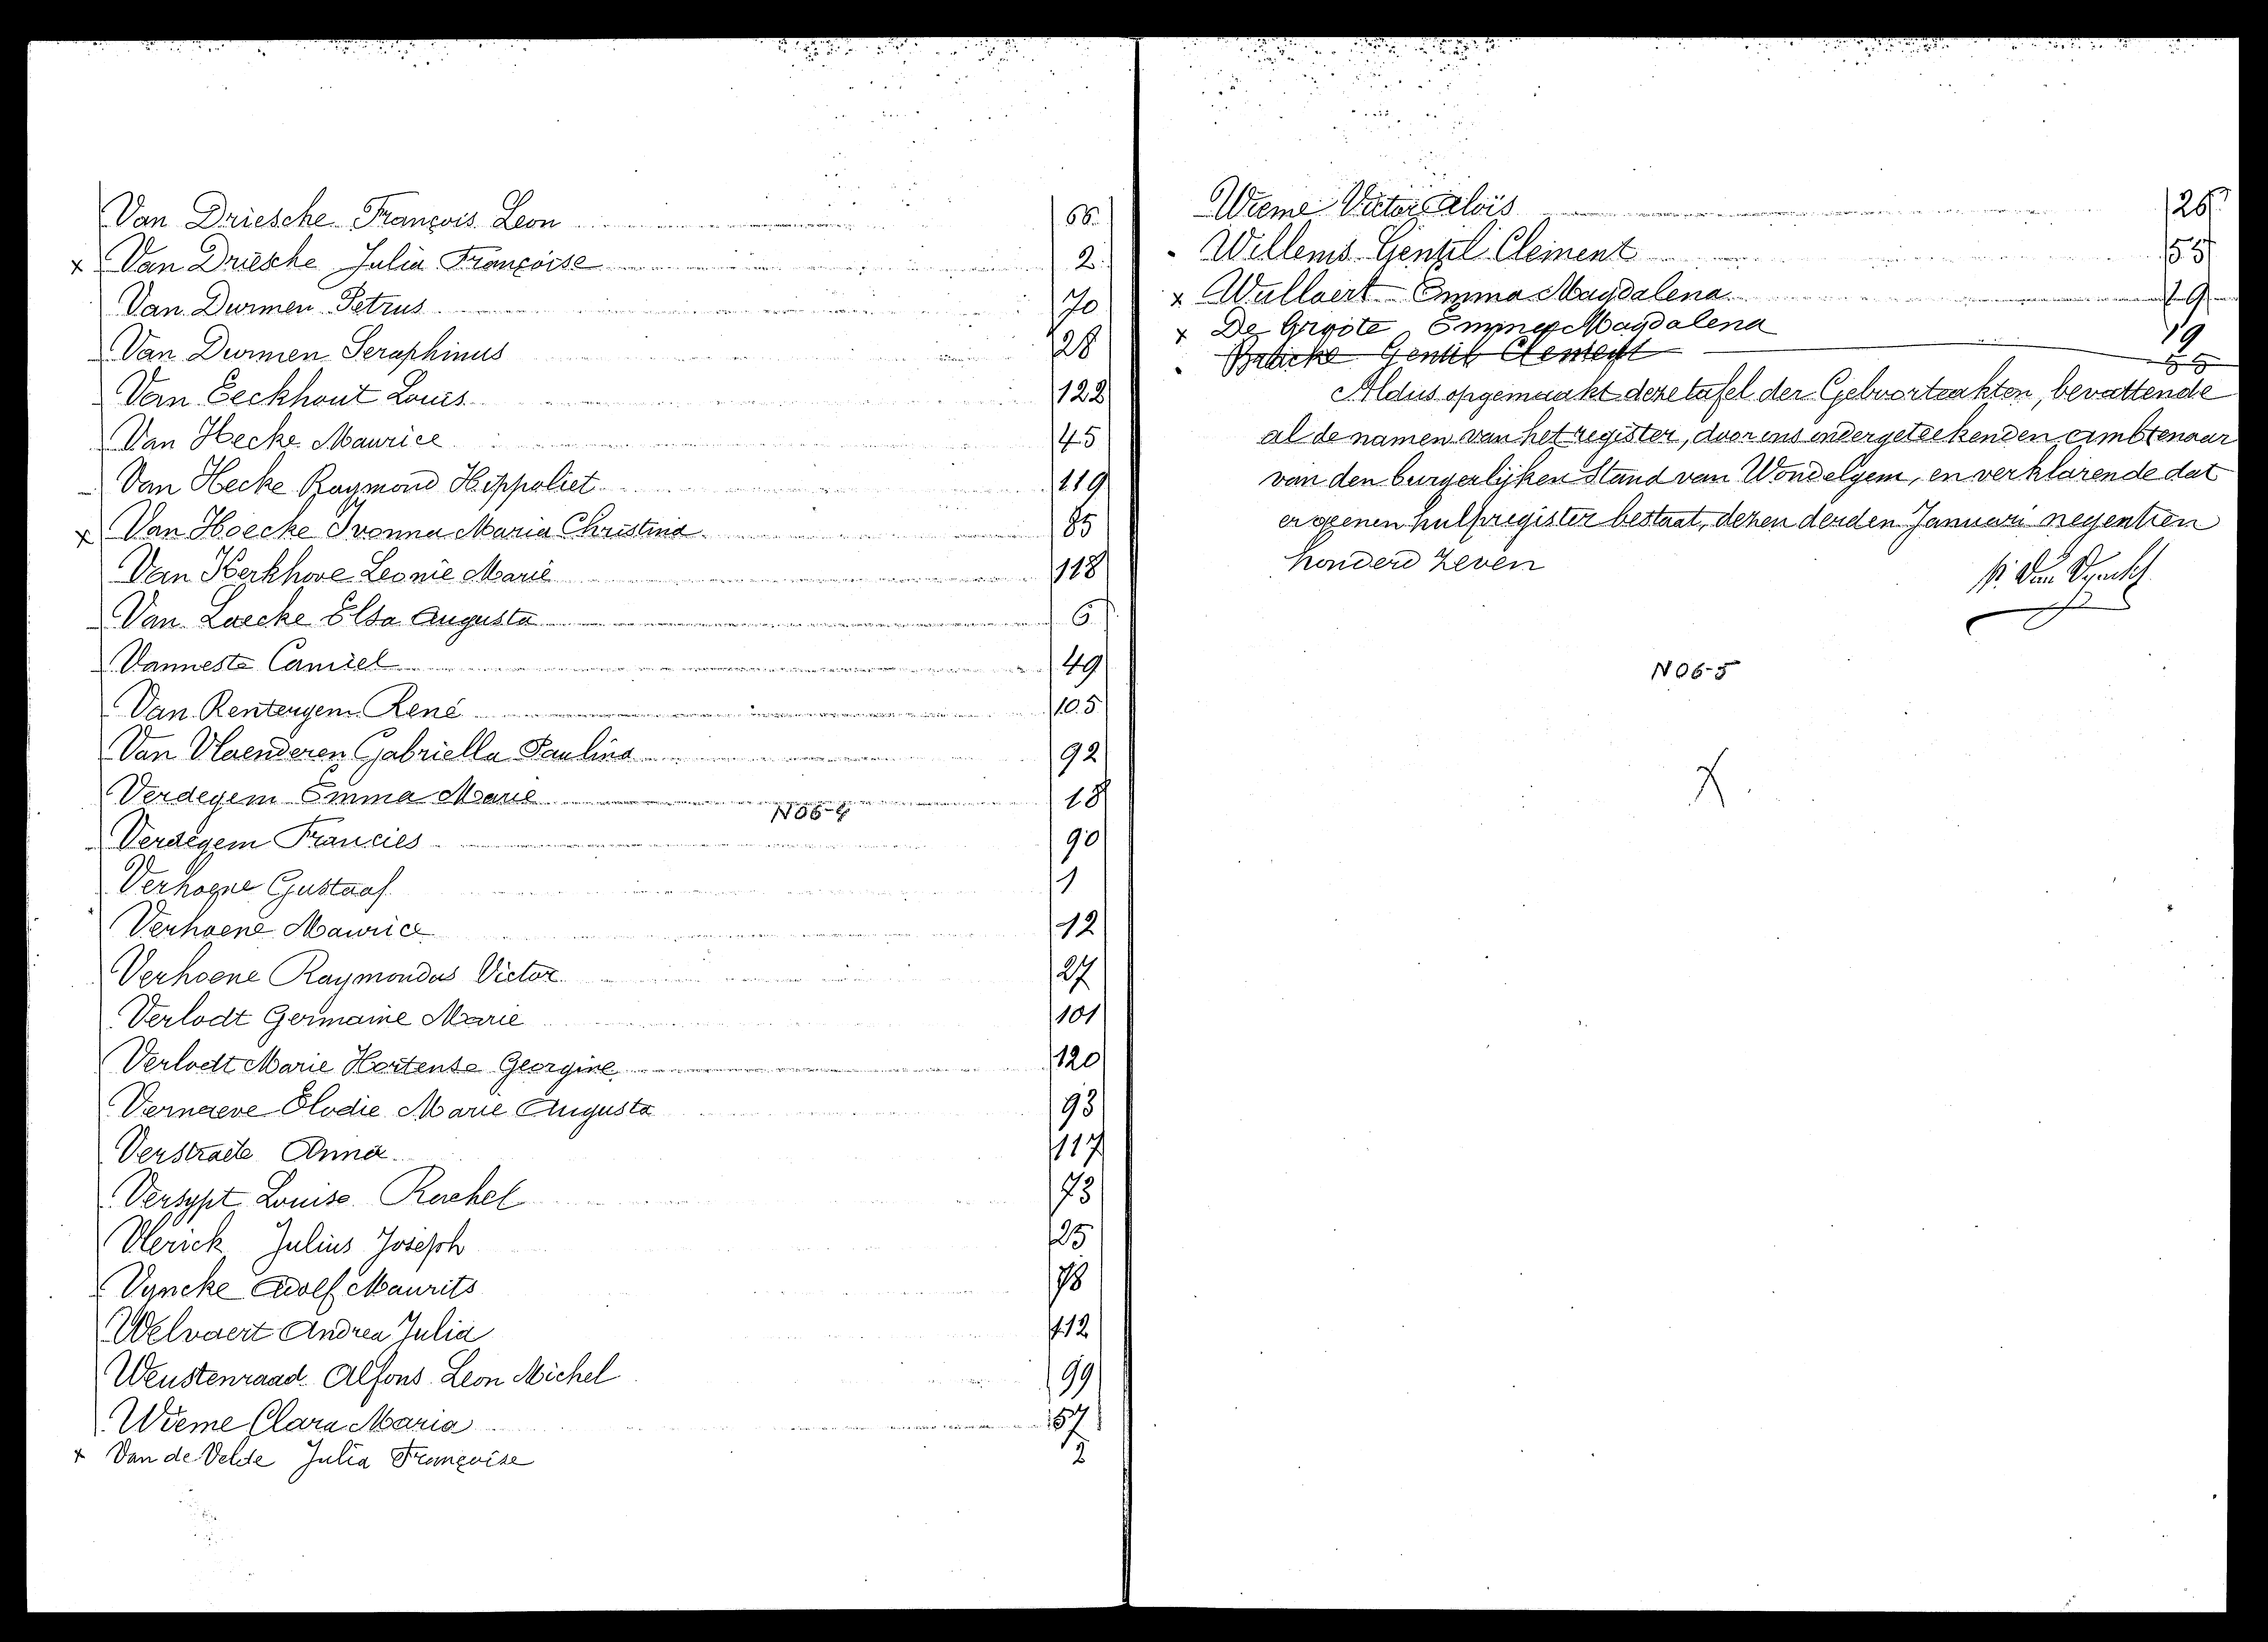 Van Driesche François Leon 66
x Van Driesche Julia Françoise 2
Van Durmen Petrus 70
Van Durmen Seraphinus 28
Van Eeckhout Louis 122
Van Hecke Maurice 45
Van Hecke Raymond Hippoliet 119
x Van Hoecke Ivonna Maria Christina 85
Van Kerkhove Leonie Marie 118
Van Laecke Elsa Augusta 6
Vanneste Camiel 49
Van Rentergem René 105
Van Vlaenderen Gabriella Paulina 92
Verdegem Emma Marie 18
N06-4
Verdegem Francies 90
Verhoene Gustaaf 1
Verhoene Maurice 12
Verhoene Raymondus Victor 27
Verlodt Germaine Marie 101
Verlodt Marie Hortense Georgine 120
Vernaeve Elodie Marie Augusta 93
Verstraete Anna 117
Versypt Louise Rachel 73
Vlerick Julius Joseph 25
Vyncke Adolf Maurits 78
Welvaert Andrea Julia 112
Weustenraad Alfons Leon Michel 99
Wieme Clara Maria 57
x Van de Velde Julia Françoise 2
Wieme Victor Aloïs 26
Willems Gentil Clement 55
x Wullaert Emma Magdalena 19
x De Groote Emma Magdalena 19
Gentil Clement 55
Aldus opgemaakt deze tafel der Geboorteakten, bevattende
al de namen van het register, door ons ondergeteekenden ambtenaar
van den burgerlijken Stand van Wondelgem, en verklarende dat
er geenen hulpregister bestaat, dezen derden Januari negentien
honderd zeven
N06-5